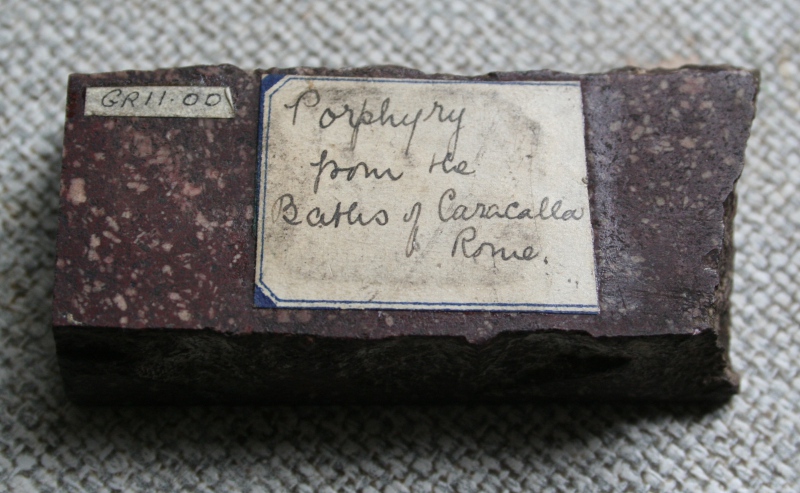 GR11.00
Porphyry
from the
Baths of Caracalla
Rome.